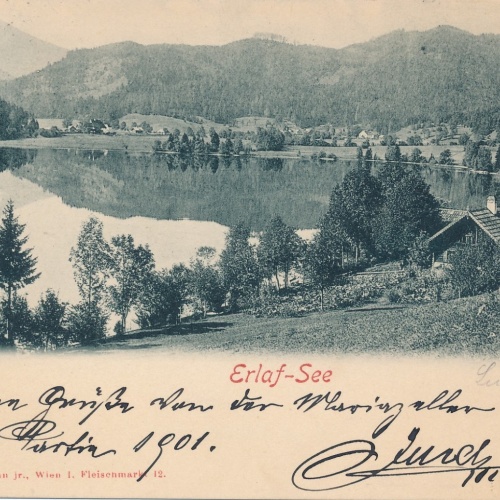 Erlaf-See
Grüße von der Mariazeller
Partie 1901.
n jr., Wien I. Fleischmarkt 12.